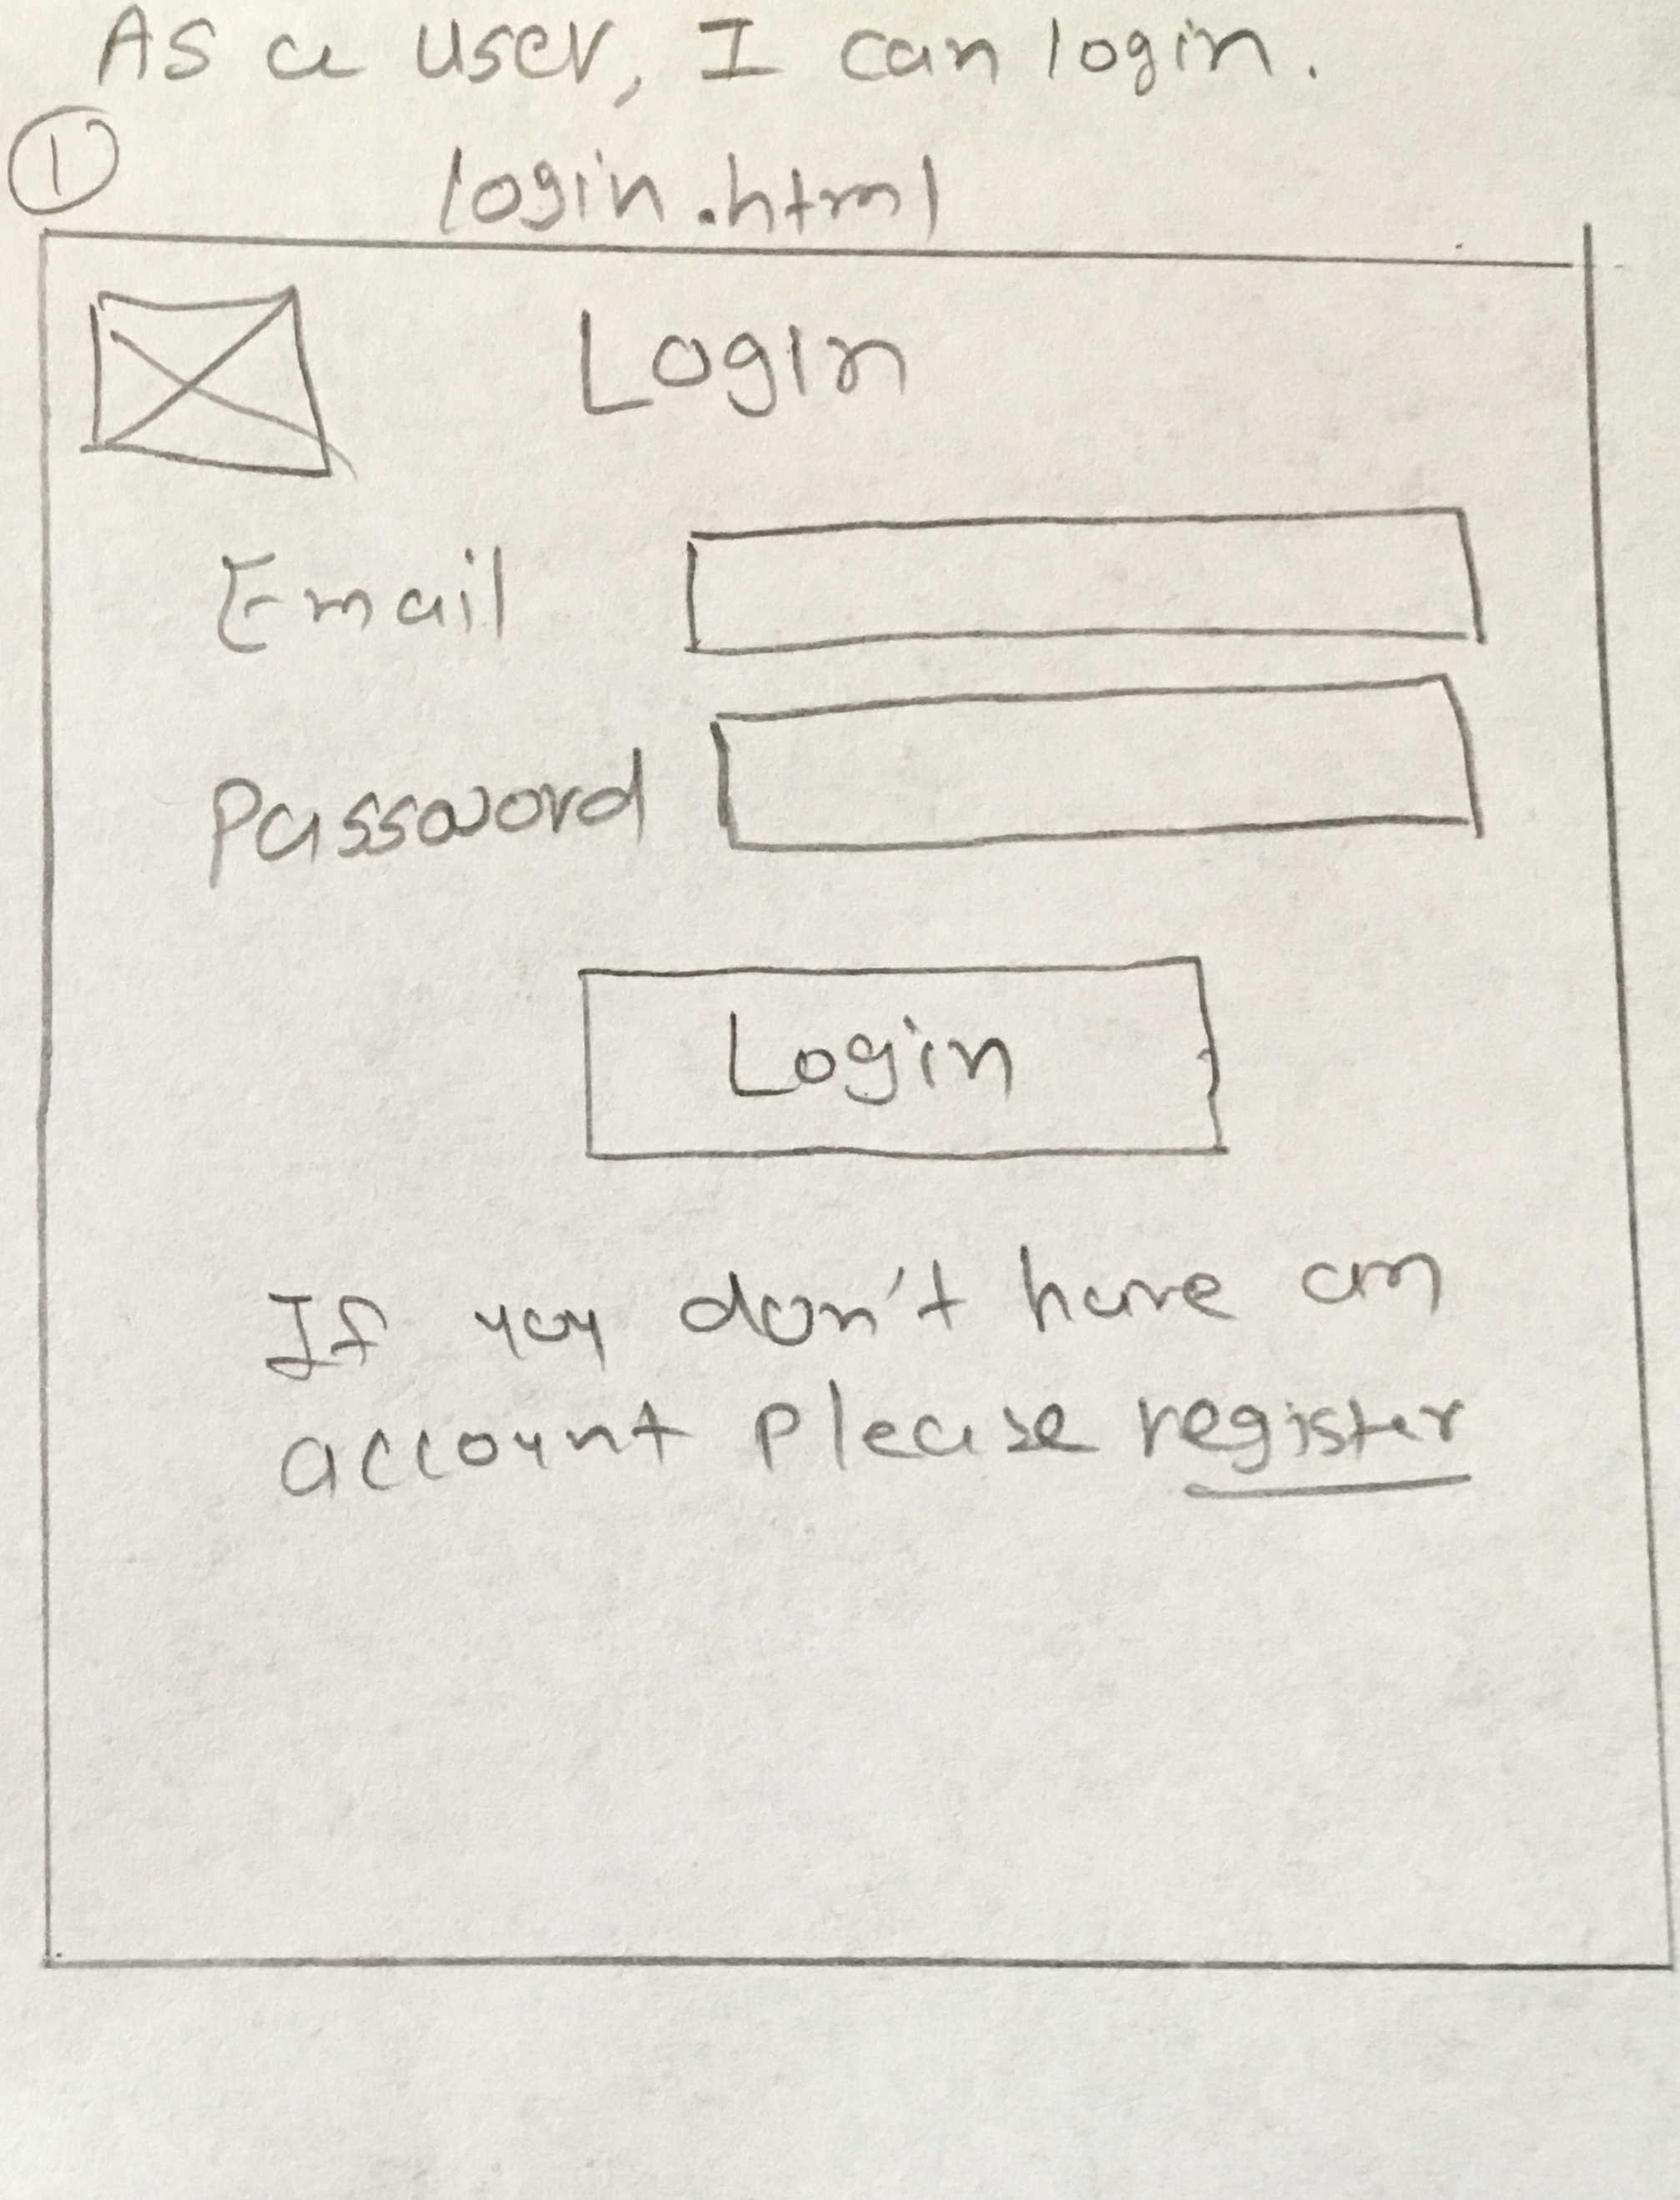 As a user, I can login.
1
login.html
Login
Email
Password
Login
If you don't have an
account please register